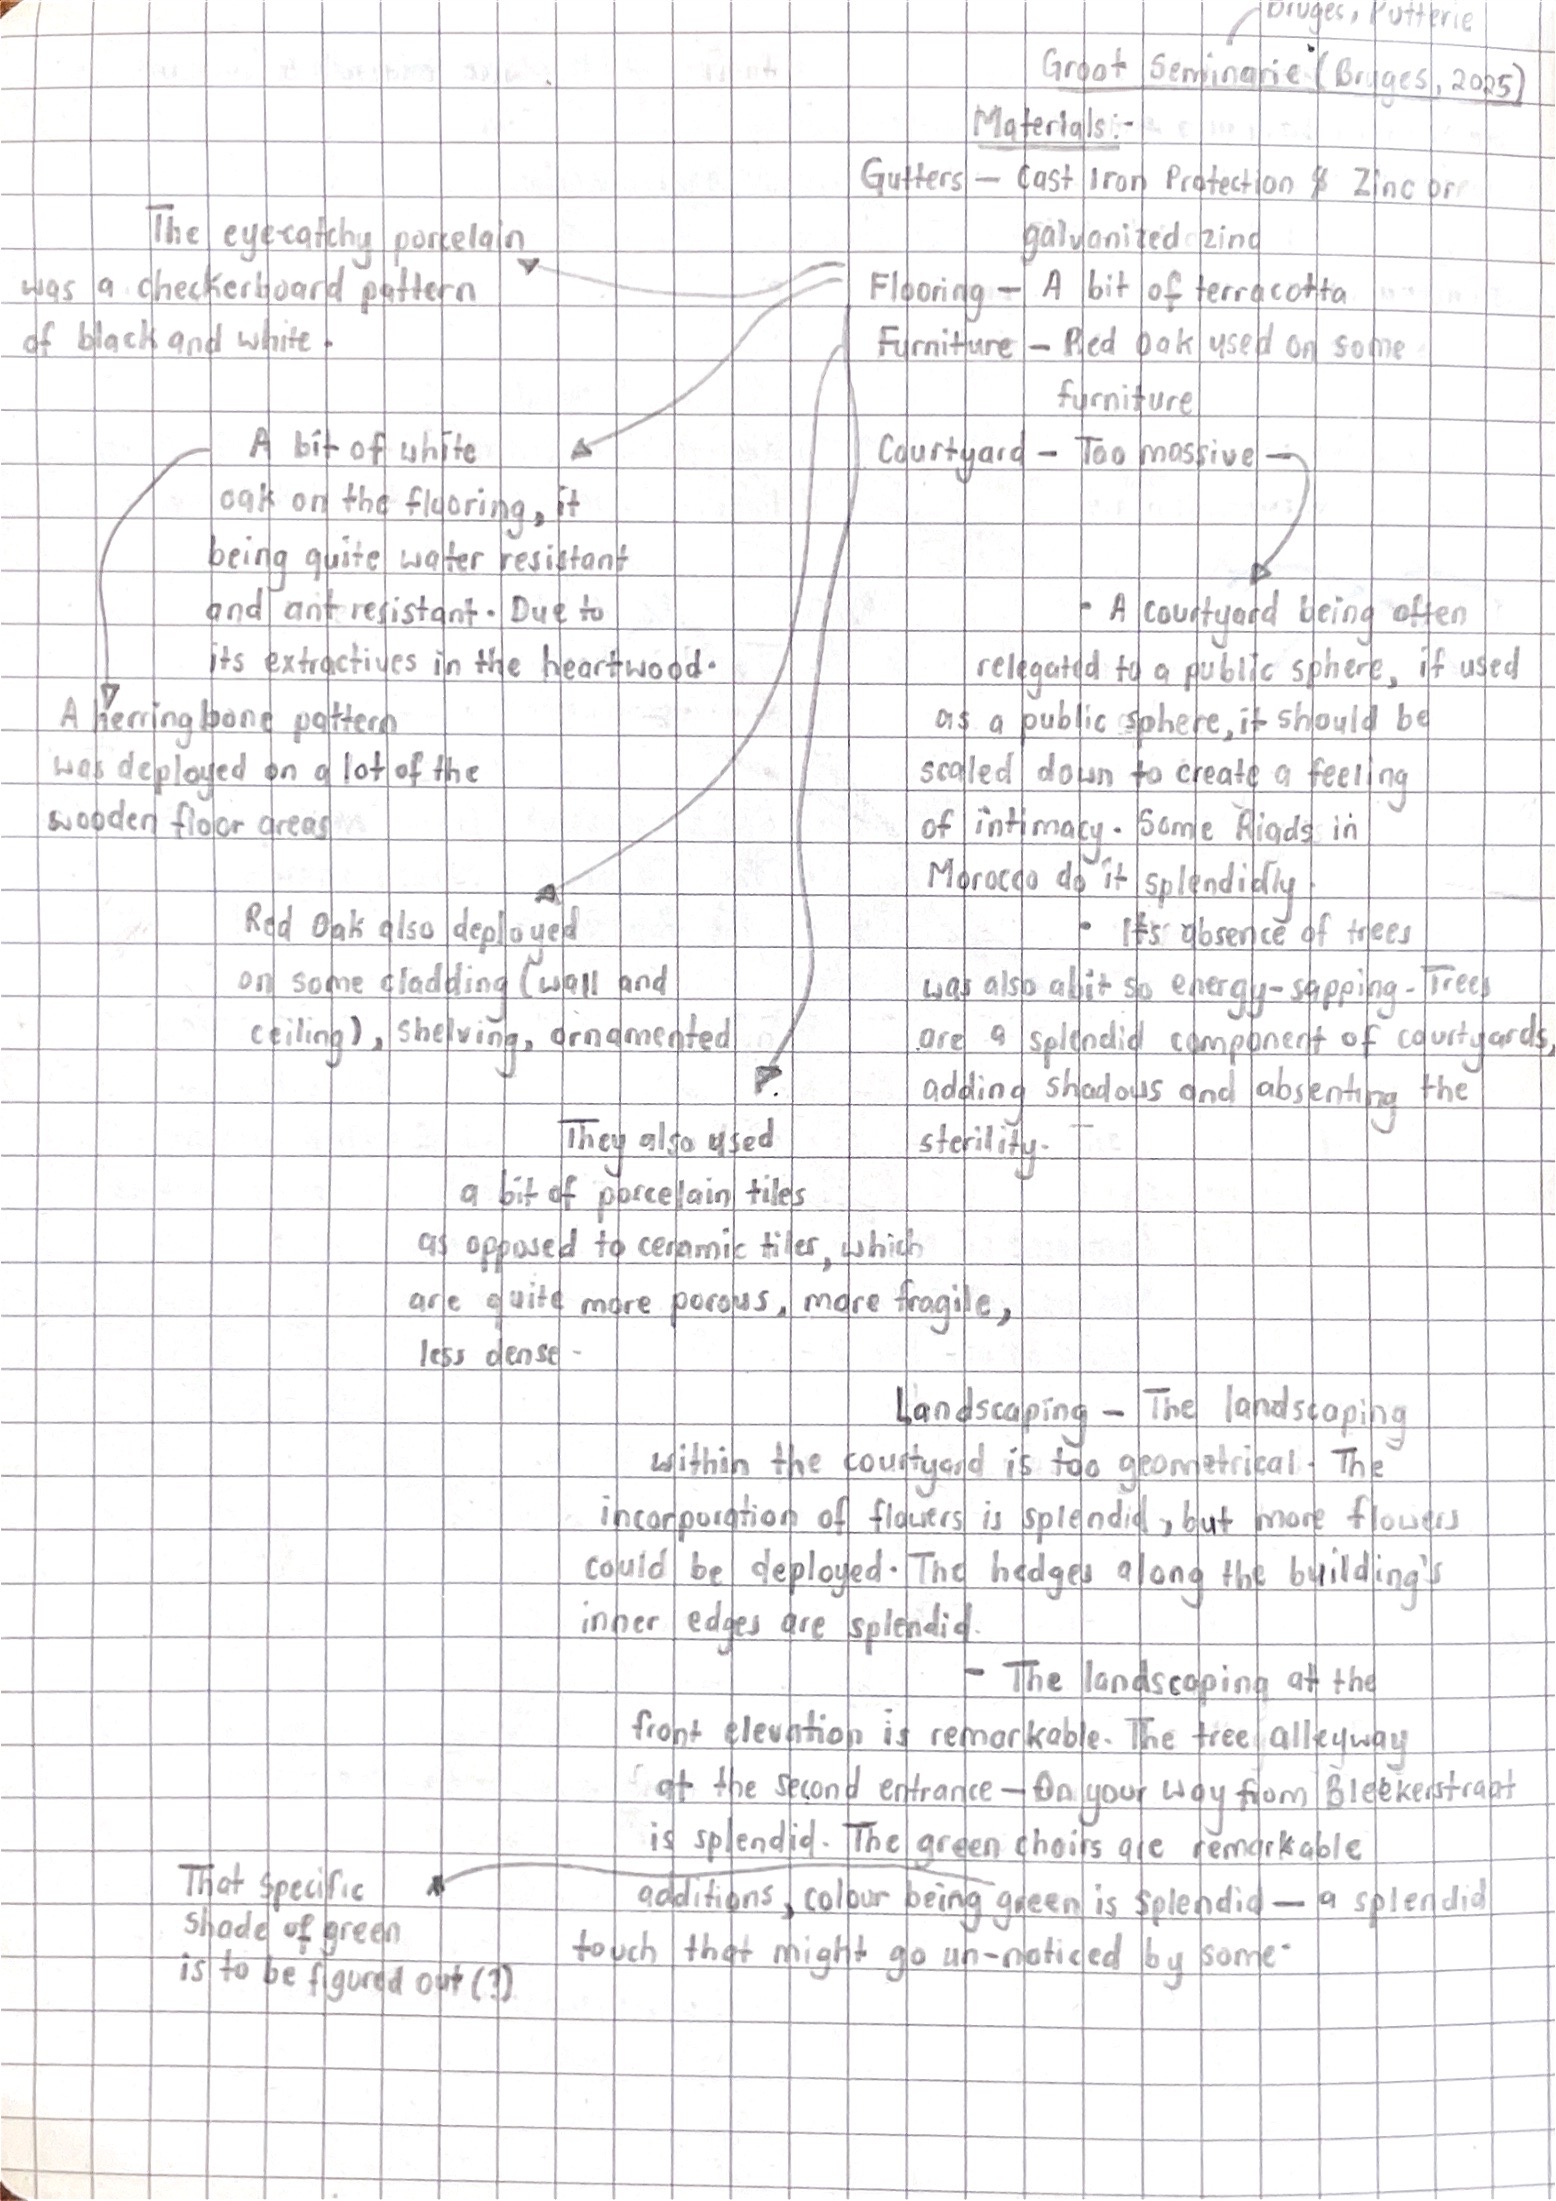 Bruges, Potterie
Groot Seminarie (Bruges, 2025)
Materials:-
Gutters - Cast Iron Protection & Zinc or
galvanized zinc
Flooring - A bit of terracotta
Furniture - Red Oak used on some
furniture
Courtyard - Too massive
• A courtyard being often
relegated to a public sphere, if used
as a public sphere, it should be
scaled down to create a feeling
of intimacy. Some Riads in
Morocco do it splendidly.
• Its absence of trees
was also a bit so energy-sapping. Trees
are a splendid component of courtyards,
adding shadows and absenting the
sterility.
The eyecatchy porcelain
was a checkerboard pattern
of black and white.
A bit of white
oak on the flooring, it
being quite water resistant
and ant resistant. Due to
its extractives in the heartwood.
A herringbone pattern
was deployed on a lot of the
wooden floor areas
Red Oak also deployed
on some cladding (wall and
ceiling), shelving, ornamented
They also used
a bit of porcelain tiles
as opposed to ceramic tiles, which
are quite more porous, more fragile,
less dense.
Landscaping - The landscaping
within the courtyard is too geometrical. The
incorporation of flowers is splendid, but more flowers
could be deployed. The hedges along the building's
inner edges are splendid.
- The landscaping at the
front elevation is remarkable. The tree alleyway
at the second entrance - On your way from Bleekerstraat
is splendid. The green chairs are remarkable
additions, colour being green is splendid - a splendid
touch that might go un-noticed by some.
That specific
shade of green
is to be figured out (?)